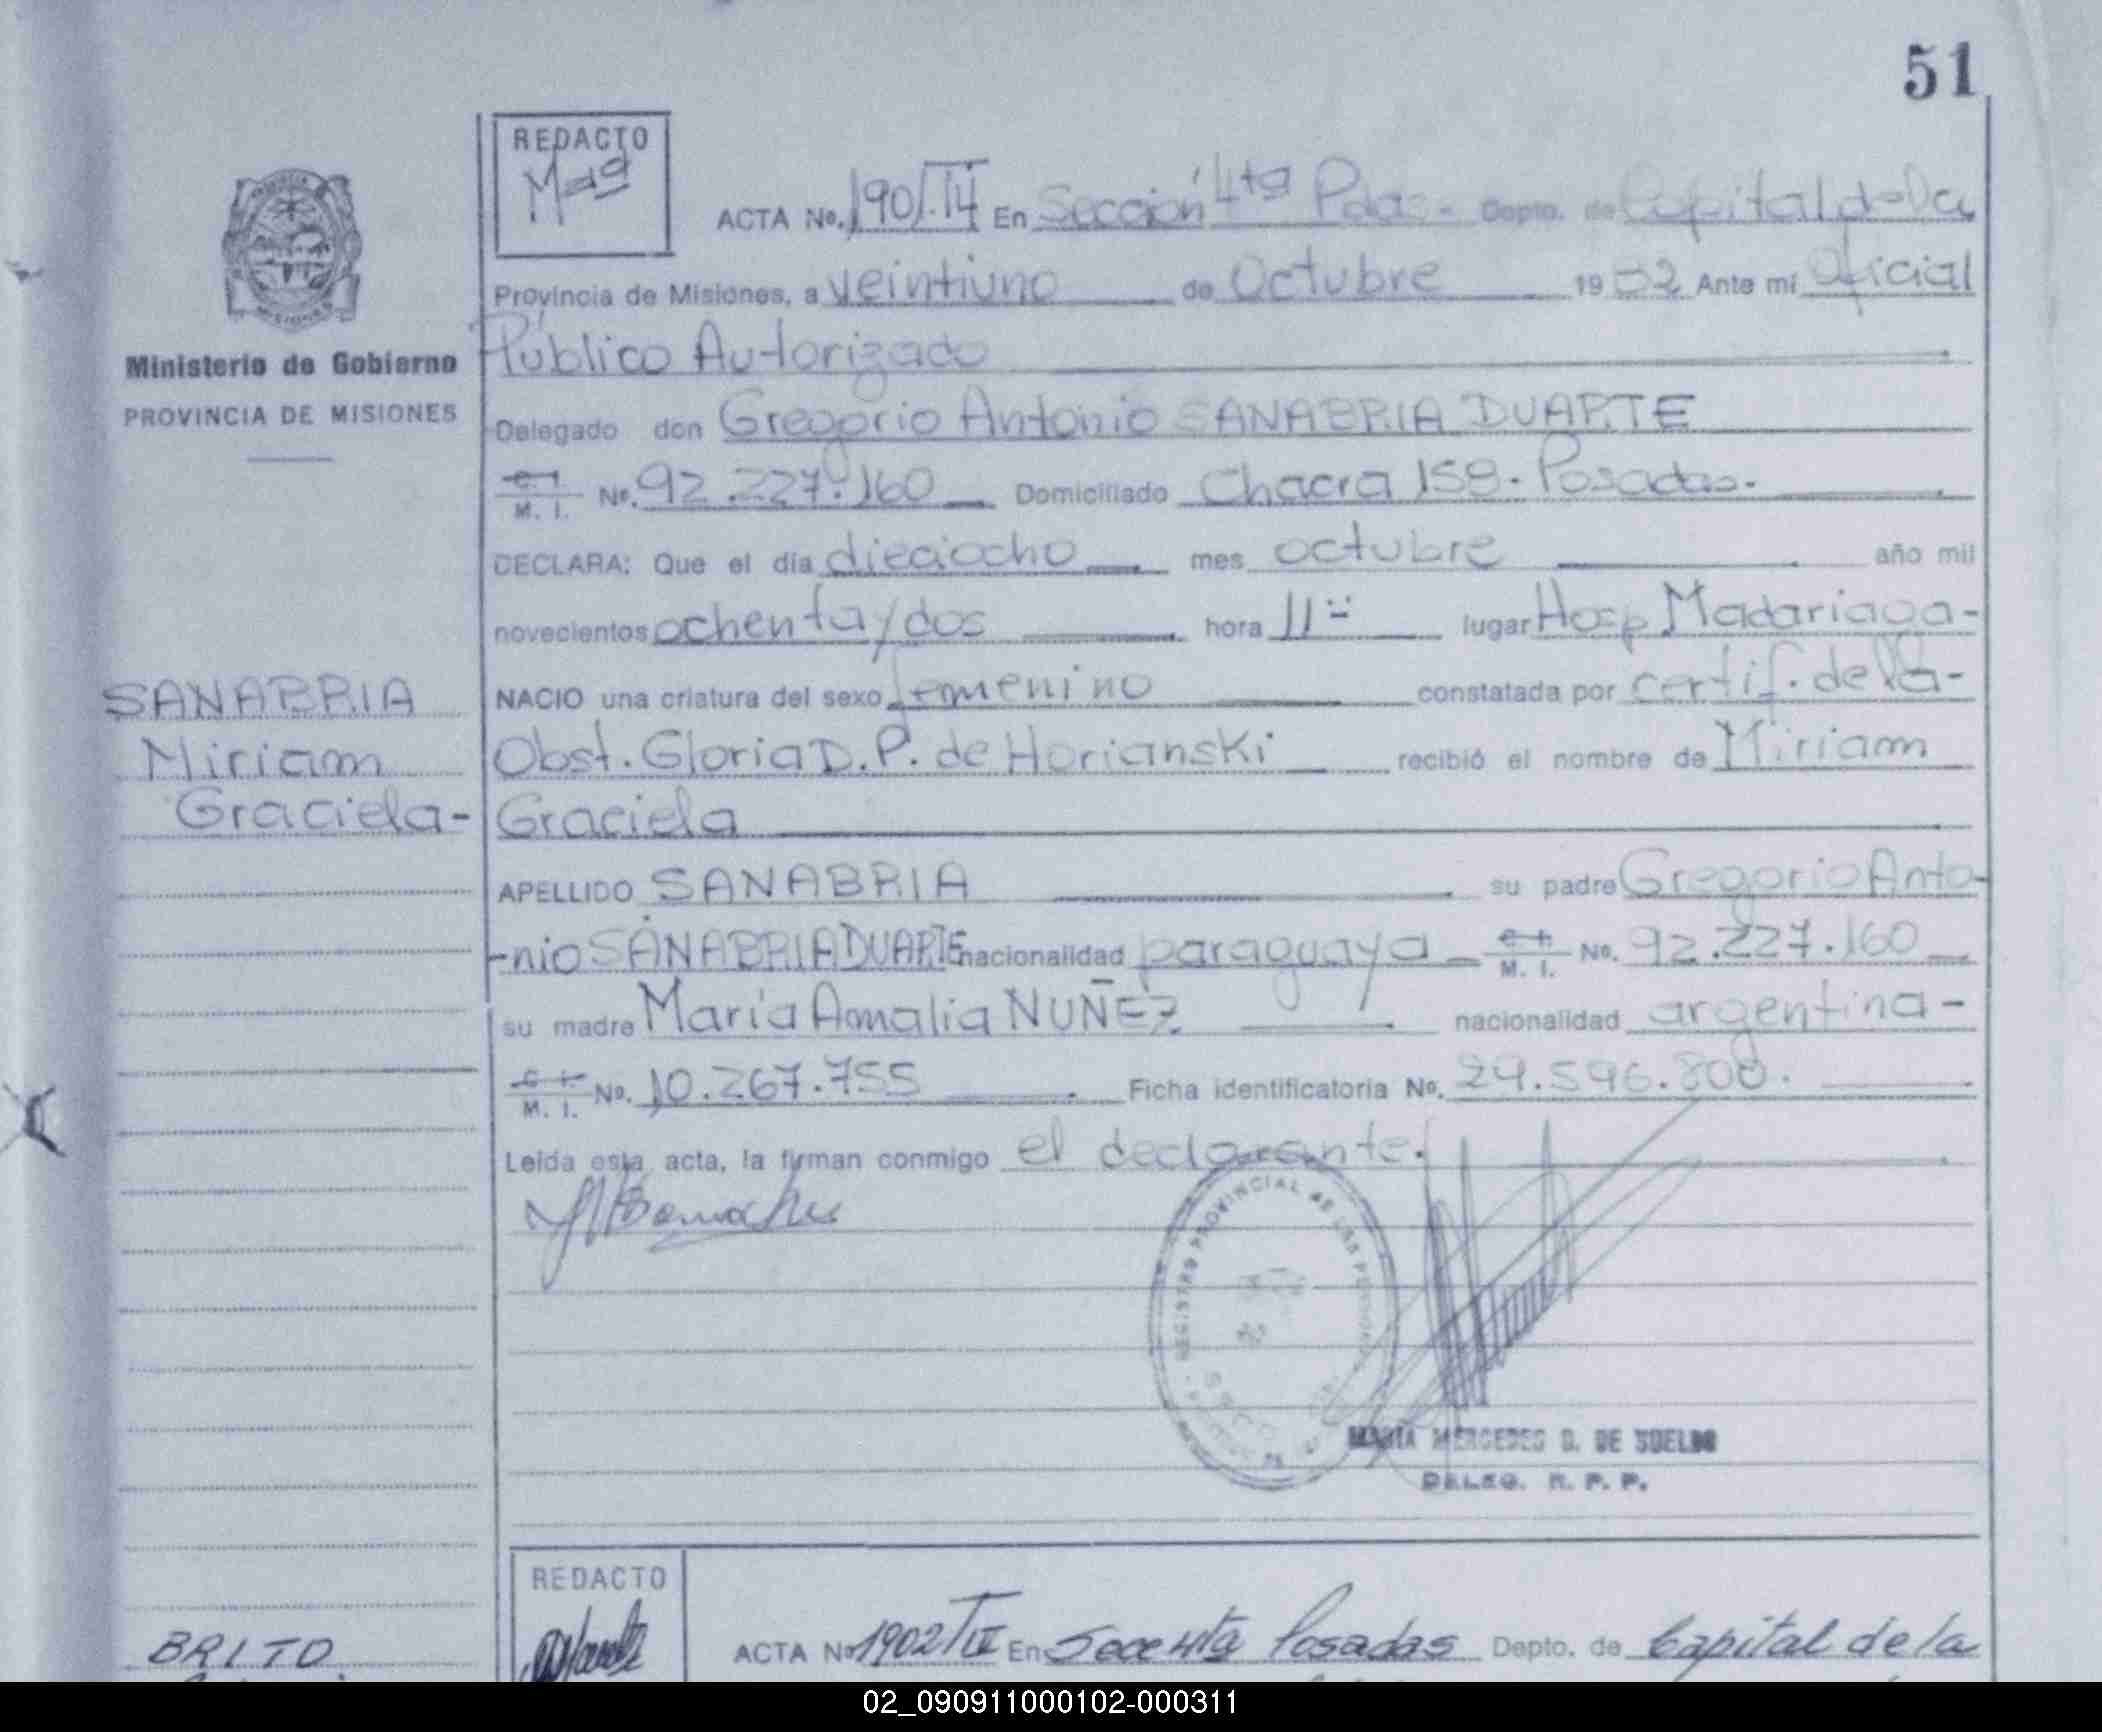 51
REDACTO
ACTA No. 1901.IV En Sección 4ta Pdas - Depto. de Capital de la
Provincia de Misiones, a veintiuno de Octubre 1982 Ante mí Oficial
Público Autorizado
Ministerio de Gobierno
PROVINCIA DE MISIONES
Delegado don Gregorio Antonio SANABRIA DUARTE
C. I. M. I. No. 92.227.160 Domiciliado Chacra 158. Posadas.
DECLARA: Que el día dieciocho mes octubre año mil
novecientos ochenta y dos hora 11 lugar Hosp Madariaga-
SANABRIA
Miriam
Graciela-
NACIO una criatura del sexo femenino constatada por certif. de la-
Obst. Gloria D. P. de Horianski recibió el nombre de Miriam
Graciela
APELLIDO SANABRIA su padre Gregorio Anto-
-nio SANABRIA DUARTE nacionalidad paraguaya C. I. M. I. No. 92.227.160
su madre María Amalia NUÑEZ nacionalidad argentina-
C. I. M. I. No. 10.267.755 Ficha identificatoria No. 29.596.800.
Leída esta acta, la firman conmigo el declarante.
REGISTRO PROVINCIAL DE LAS PERSONAS
MARIA MERCEDES D. DE SUELDO
DELEG. R. P. P.
REDACTO
ACTA No 1902/IV En Secc 4ta Posadas Depto. de Capital de la
BRITO
02_090911000102-000311